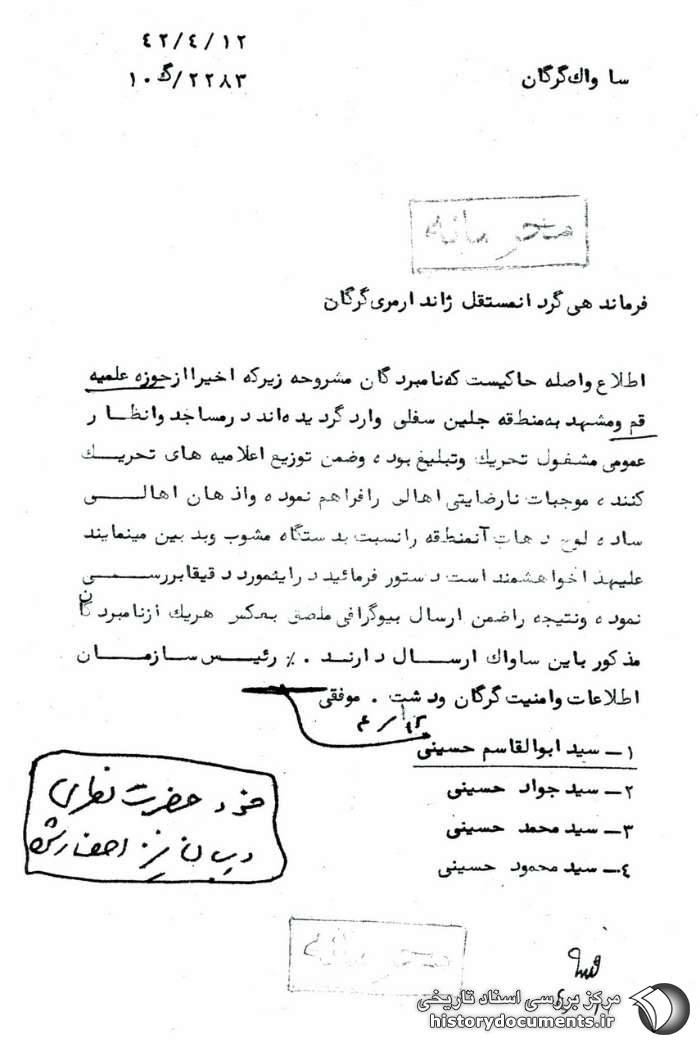 ۴۲/۴/۱۲
۱۰گ/۲۲۸۳
ساواك گرگان
محرمانه
فرماندهی گردانمستقل ژاندارمری گرگان
اطلاع واصله حاکیست که نامبردگان مشروحه زیرکه اخیرا ازحوزه علمیه
قم ومشهد به منطقه جلین سفلی وارد گردیده اند درمساجد وانظار
عمومی مشغول تحریك وتبلیغ بوده وضمن توزیع اعلامیه های تحریك
کننده موجبات نارضایتی اهالی رافراهم نموده واذهان اهالی
ساده لوح دهات آنمنطقه رانسبت بدستگاه مشوب وبدبین مینمایند
علیهذا خواهشمند است دستور فرمائید دراینمورد دقیقا بررسی
نموده ونتیجه راضمن ارسال بیوگرافی ملصق بعکس هریك ازنامبردگان
مذکور باین ساواك ارسال دارند . ٪ رئیس سازمان
اطلاعات وامنیت گرگان ودشت . موفقی
۴/۱۲
۱ـ سید ابوالقاسم حسینی
۲ـ سید جواد حسینی
۳ـ سید محمد حسینی
۴ـ سید محمود حسینی
محرمانه
مرکز بررسی اسناد تاریخی
historydocuments.ir